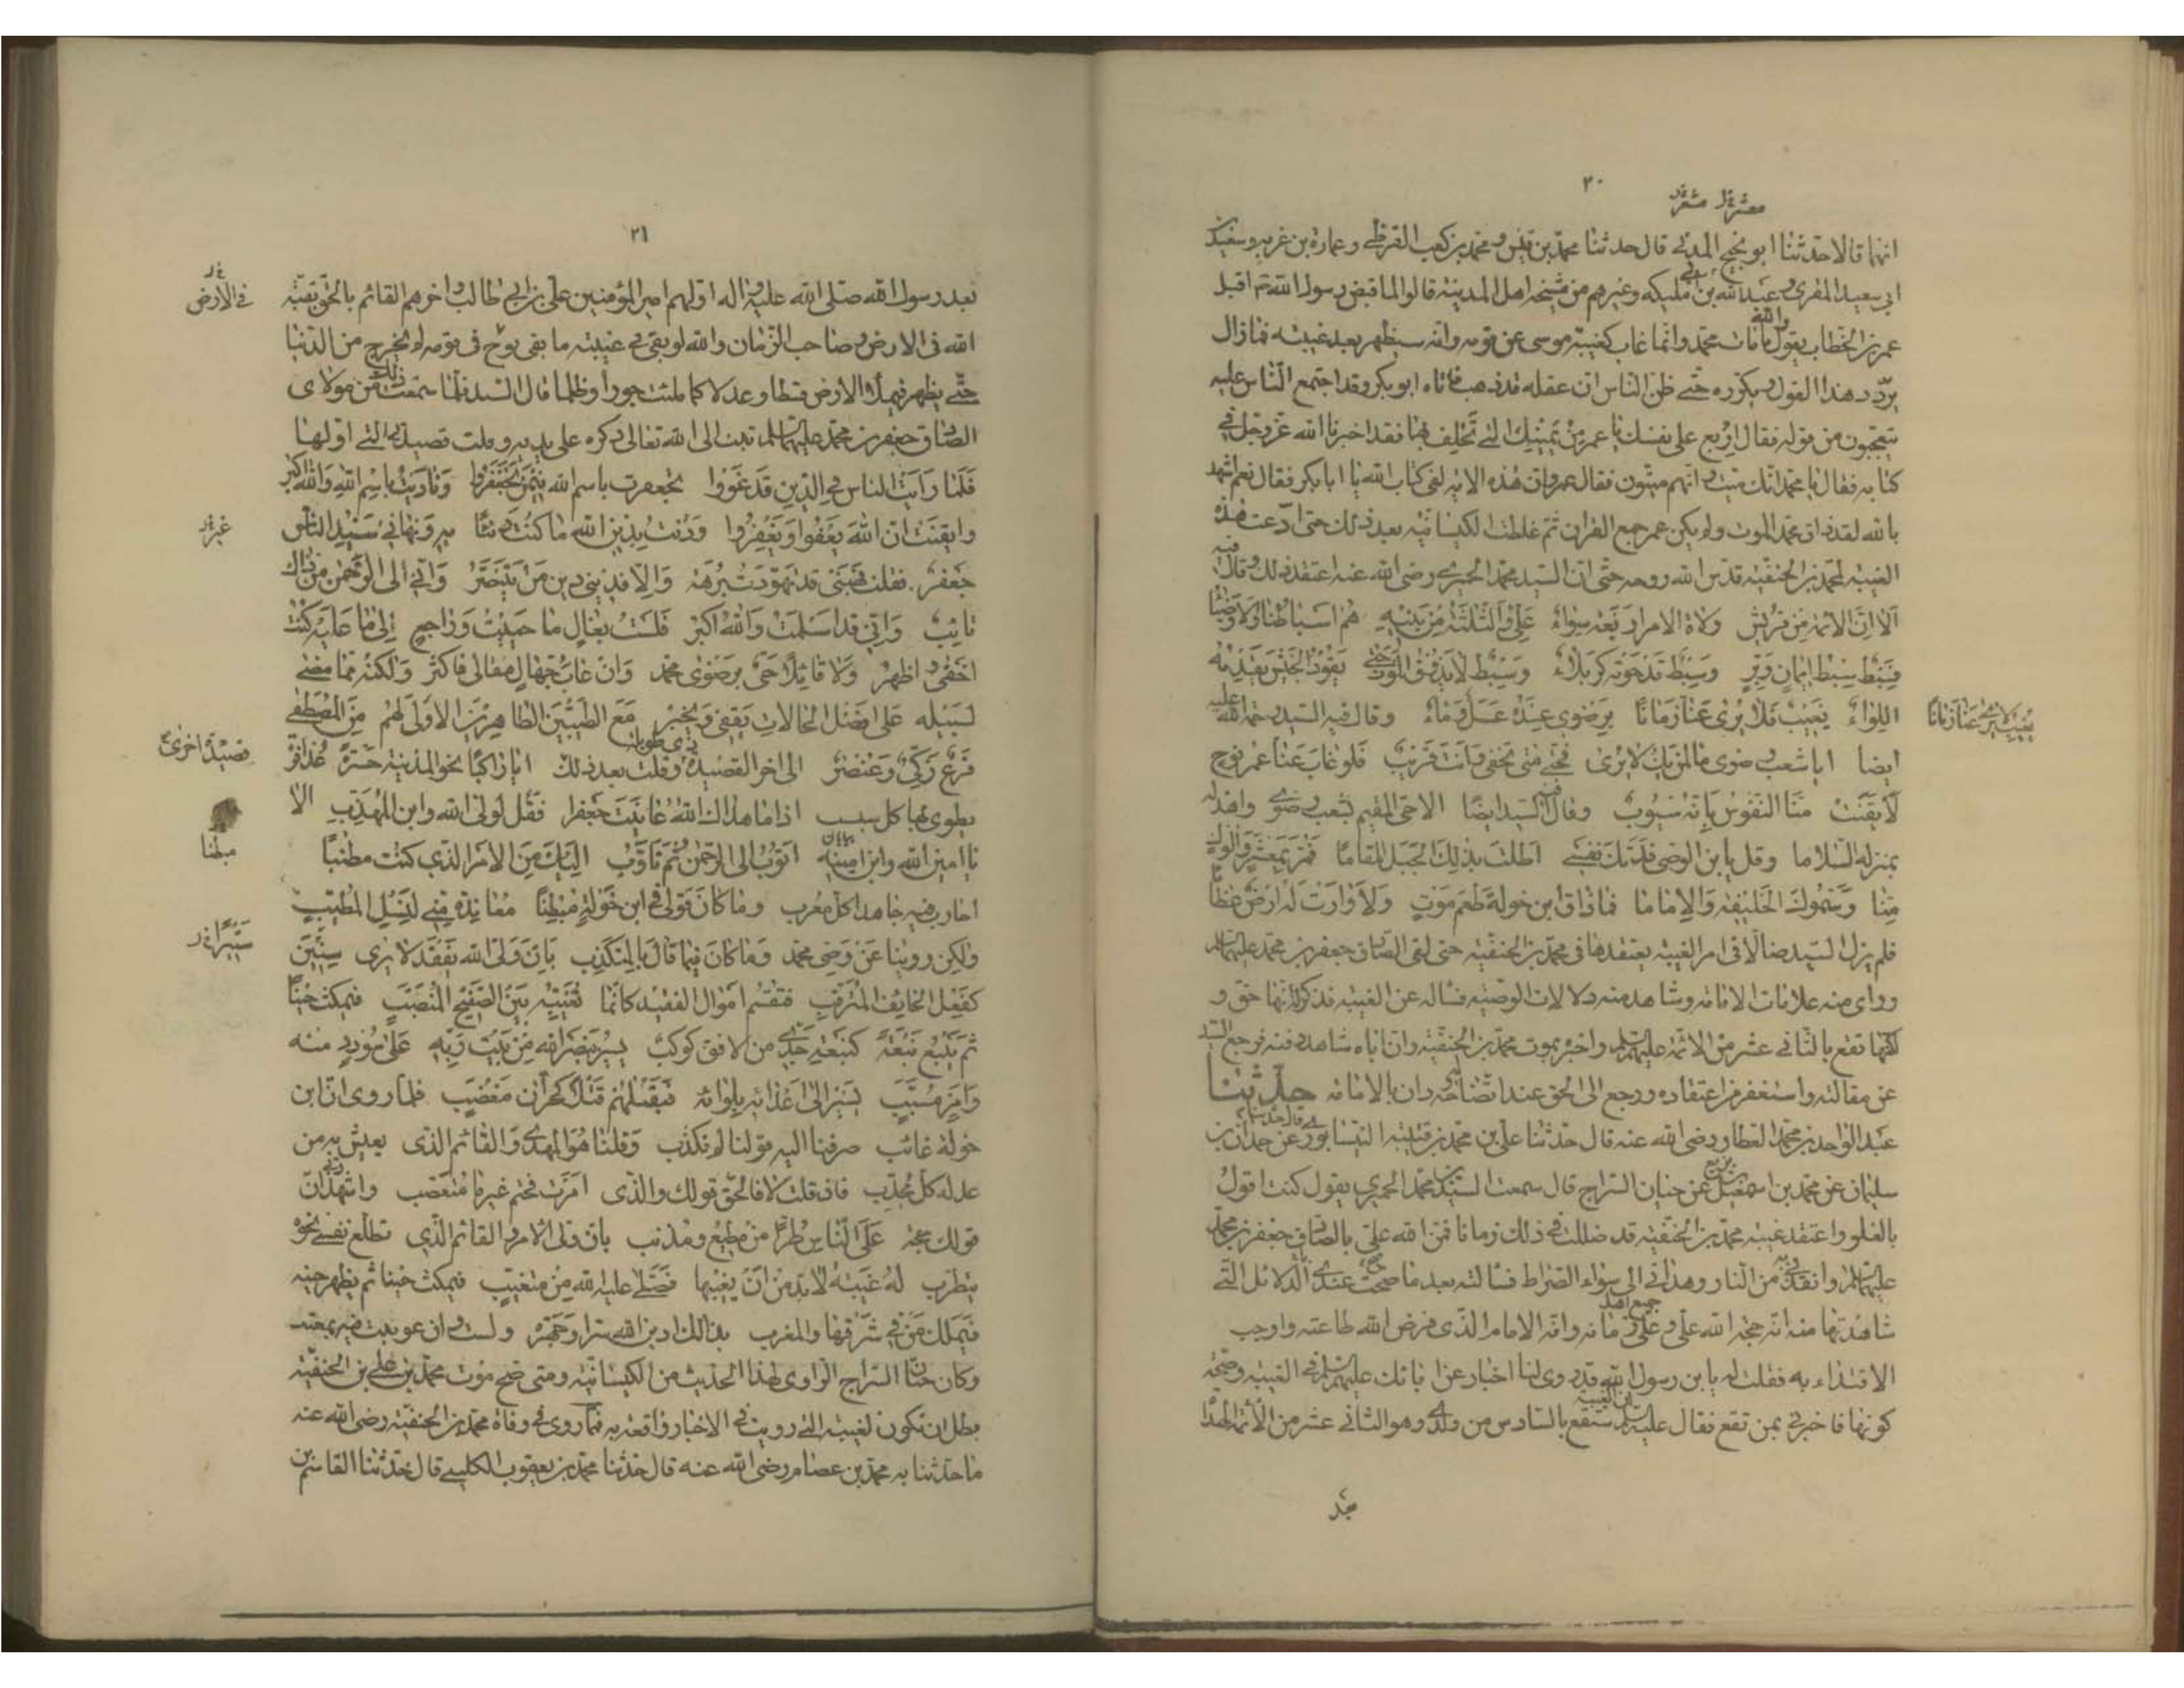 ٢٠
انهما قالا حدثنا ابو نجيح المدنى قال حدثنا محمد بن قيس و محمد بن كعب القرظى و عمارة بن غريه وسعيد بن
ابى سعيد المقرى و عبد الله بن ابى مليكه وغيرهم من مشيخه اهل المدينة قالوا لما قبض رسول الله ص اقبل
عمر بن الخطاب يقول والله ما مات محمد وانما غاب كغيبة موسى عن قومه وانه سيظهر بعد غيبته فما زال
يردد هذا القول ويكرره حتى ظن الناس ان عقله قد ذهب فاتاه ابو بكر وقد اجتمع الناس عليه
يتعجبون من قوله فقال اربع على نفسك يا عمر من يمينك التى تحلف بها فقد اخبرنا الله عز وجل فى
كتابه فقال يا محمد انك ميت و انهم ميتون فقال عمر وان هذه الاية لفى كتاب الله يا ابا بكر فقال نعم اشهد
بالله لقد ذاق محمد الموت ولم يكن عمر جمع القران ثم غلطت الكيسانيه بعد ذلك حتى ادعت هذه
الغيبه لمحمد بن الحنفيه قدس الله روحه حتى ان السيد محمد الحميرى رضى الله عنه اعتقد ذلك وقال فيه
الا ان الائمه من قريش ولاة الامر اربعة سواء على والثلثة من بنيه هم اسباطنا والاوصيا
فسبط سبط ايمان وبر وسبط قد حوته كربلاء وسبط لا يذوق الموت حتى يقود الجيش يقدمه
اللواء يغيب فلا يرى عنا زمانا برضوى عنده عسل وماء وقال فيه السيد رحمة الله عليه
يغيب لا يرى عنا زمانا
ايضا ايا شعب رضوى ما لمن بك لا يرى فحتى متى تخفى وانت قريب فلو غاب عنا عمر نوح
لايقنت منا النفوس بانه سيؤب وقال فيه السيد ايضا الا حى المقيم بشعب رضوى واهد له
بمنزله السلاما وقل يا بن الوصى فدتك نفسى اطلت بذلك الجبل المقاما فمر بمعشر والوك
منا وسموك الخليفه والاماما فما ذاق ابن خولة طعم موت ولا وارت له ارض عظاما
فلم يزل السيد ضالا فى امر الغيبه يعتقدها فى محمد بن الحنفيه حتى لقى الصادق جعفر بن محمد عليهما السلم
وراى منه علامات الامامه وشاهد منه دلالات الوصيه فساله عن الغيبه فذكر له انها حق و
لكنها تقع بالثانى عشر من الائمة عليهم السلم واخبره بموت محمد بن الحنفيه وان اباه شاهد دفنه فرجع السيد
عن مقالته واستغفر من اعتقاده ورجع الى الحق عند اتضاحه له ودان بالامامه حدثنا
عبد الواحد بن محمد العطار رضى الله عنه قال حدثنا على بن محمد بن قتيبه النيسابورى قال حدثنا عن حمدان بن
سليمان عن محمد بن اسمعيل بن بزيع عن حنان السراج قال سمعت السيد بن محمد الحميرى يقول كنت اقول
بالغلو واعتقد غيبه محمد بن الحنفيه قد ضللت فى ذلك زمانا فمن الله على بالصادق جعفر بن محمد
عليهما السلم وانقذنى به من النار وهدانى الى سواء الصراط فسالته بعد ما صحت عندى الدلائل التى
شاهدتها منه انه حجه الله على و على جميع اهل زمانه وانه الامام الذى فرض الله طاعته واوجب
الاقتداء به فقلت له يا بن رسول الله قد روى لنا اخبار عن ابائك عليهم السلم فى الغيبه وصحة
كونها فاخبرنى بمن تقع فقال عليه السلم ان الغيبة ستقع بالسادس من ولدى وهو الثانى عشر من الائمة الهداة
بعد
٢١
بعد رسول الله صلى الله عليه واله اولهم امير المؤمنين على بن ابى طالب و اخرهم القائم بالحق بقية
فى الارض
الله فى الارض و صاحب الزمان والله لو بقى فى غيبته ما بقى نوح فى قومه لم يخرج من الدنيا
حتى يظهر فيملأ الارض قسطا وعدلا كما ملئت جورا وظلما قال السيد فلما سمعت ذلك من مولاى
الصادق جعفر بن محمد عليهما السلم تبت الى الله تعالى ذكره على يديه وقلت قصيدتى التى اولها
فلما رايت الناس فى الدين قد غووا تجعفرت باسم الله فيمن تجعفروا وناديت باسم الله والله اكبر
وايقنت ان الله يعفوا ويغفر ودنت بدين الله ما كنت دينا به ونهانى سيد الناس
غير
جعفر فقلت فهبنى قد تهودت برهة والا فدينى دين من يتنصر وانى الى الرحمن من ذاك
تائب وانى قد اسلمت والله اكبر فلست بغال ما حييت وراجع الى ما عليه كنت
اخفى و اظهر ولا قائلا حى برضوى محمد وان عاب جهال مقالى فاكثر ولكنه مما مضى
لسبيله على افضل الحالات يقفى ويخبر مع الطيبين الطاهرين الاولى لهم من المصطفى
فرع زكى وعنصر الى اخر القصيده وهى طويلة وقلت بعد ذلك ايا راكبا نحو المدينه جسرة عذافرة
قصيدة اخرى
يطوى بها كل سبسب اذا ما هداك الله عاينت جعفرا فقل لولى الله وابن المهذب الا
يا امين الله وابن امينه اتوب الى الرحمن ثم تاوبى اليك من الامر الذى كنت مطنبا
مبطنا
احارب فيه جاهدا كل معرب وما كان قولى فى ابن خولة مبطنا معاندة منى لنسل المطيب
ولكن روينا عن وصى محمد وما كان فيما قال بالمتكذب بان ولى الله يفقد لا يرى سنين
كفعل الخايف المترقب فتقسم اموال الفقيد كانما تغيبه بين الصفيح المنصب فيمكث حينا
ثم ينبع نبعة كنبعة جدى من الافق كوكب يسير بنصر الله من بيت ربه على سودد منه
وامر مسبب يسير الى اعدائه بلوائه فيقتلهم قتلا كحران مغضب فلما روى ان ابن
خولة غائب صرفنا اليه قولنا لم نكذب وقلنا هو المهدى والقائم الذى يعيش به من
عدله كل مجدب فان قلت لا فالحق قولك والذى امرت فحتم غير ما متعصب واشهد ربى ان
قولك حجة على الناس طرا من مطيع ومذنب بان ولى الامر والقائم الذى تطلع نفسى نحوه
بتطرب له غيبة لا بد من ان يغيبها فصلى عليه الله من متغيب فيمكث حينا ثم يظهر حينه
فيملك من فى شرقها والمغرب بذالك ادين الله سرا وجهرة ولست و ان عوتبت فيه بمعتب
وكان حنان السراج الراوى لهذا الحديث من الكيسانيه ومتى صح موت محمد بن على بن الحنفيه
بطل ان تكون الغيبه التى رويت فى الاخبار واقعة به فمما روى فى وفاة محمد بن الحنفيه رضى الله عنه
ما حدثنا به محمد بن عصام رضى الله عنه قال حدثنا محمد بن يعقوب الكلينى قال حدثنا القاسم بن